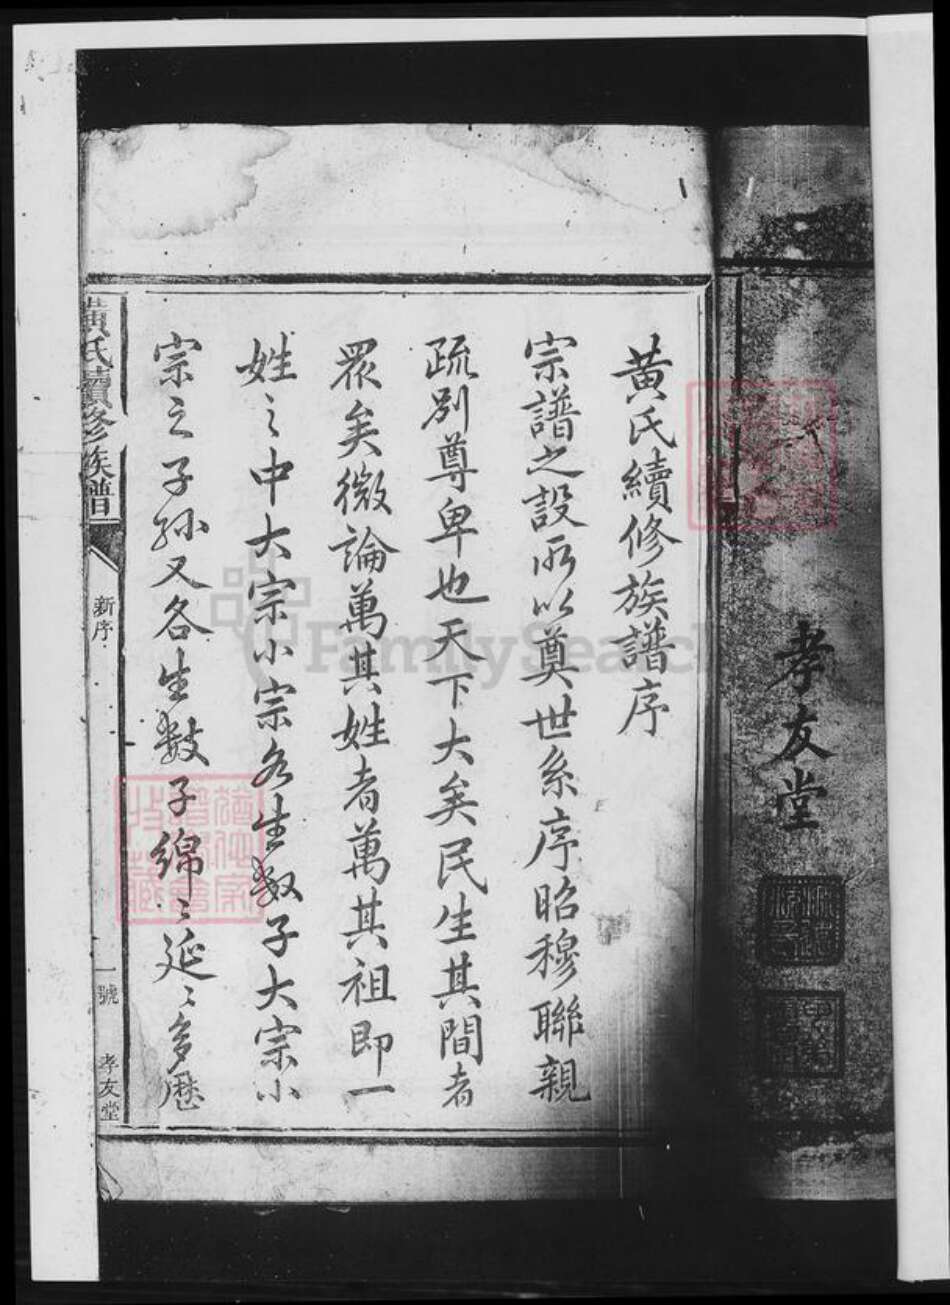 孝友堂
黄氏續修族譜序
宗譜之設所以奠世系序昭穆聯親
疏别尊卑也天下大矣民生其間者
眾矣微論萬其姓者萬其祖即一
姓之中大宗小宗各生数子大宗小
宗之子孫又各生数子綿〻延〻多歷
黄氏續修族譜
新序
一號
孝友堂
FamilySearch